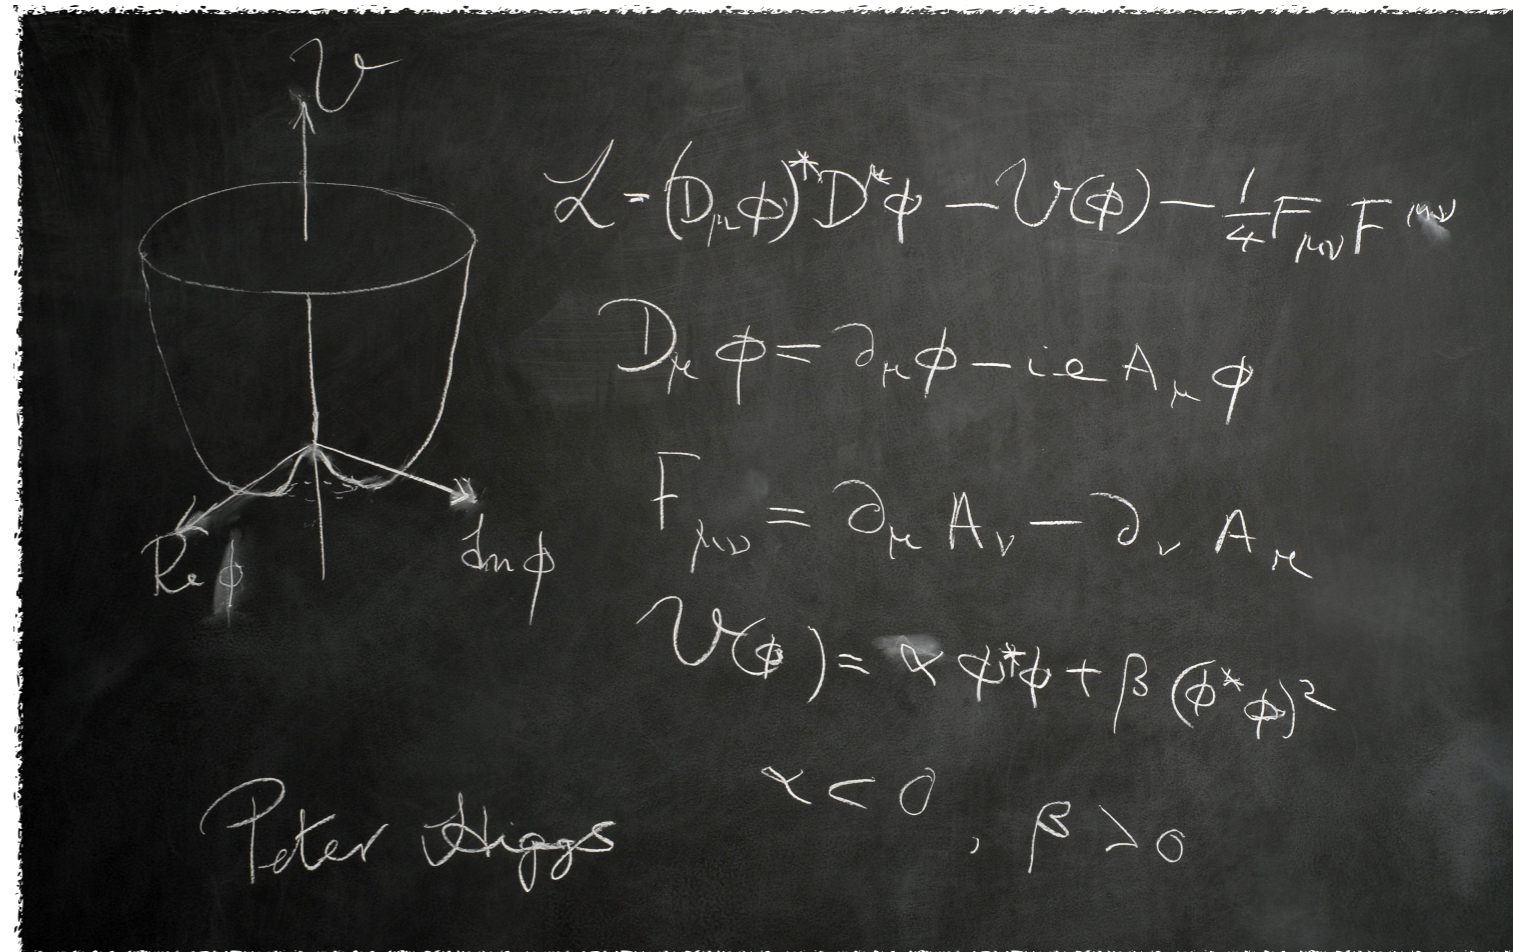 𝒱
ℒ = (D_μ ϕ)* D^μ ϕ − 𝒱(ϕ) − 1/4 F_μν F^μν
D_μ ϕ = ∂_μ ϕ − i e A_μ ϕ
F_μν = ∂_μ A_ν − ∂_ν A_μ
Re ϕ
Im ϕ
𝒱(ϕ) = α ϕ*ϕ + β (ϕ*ϕ)²
α < 0, β > 0
Peter Higgs